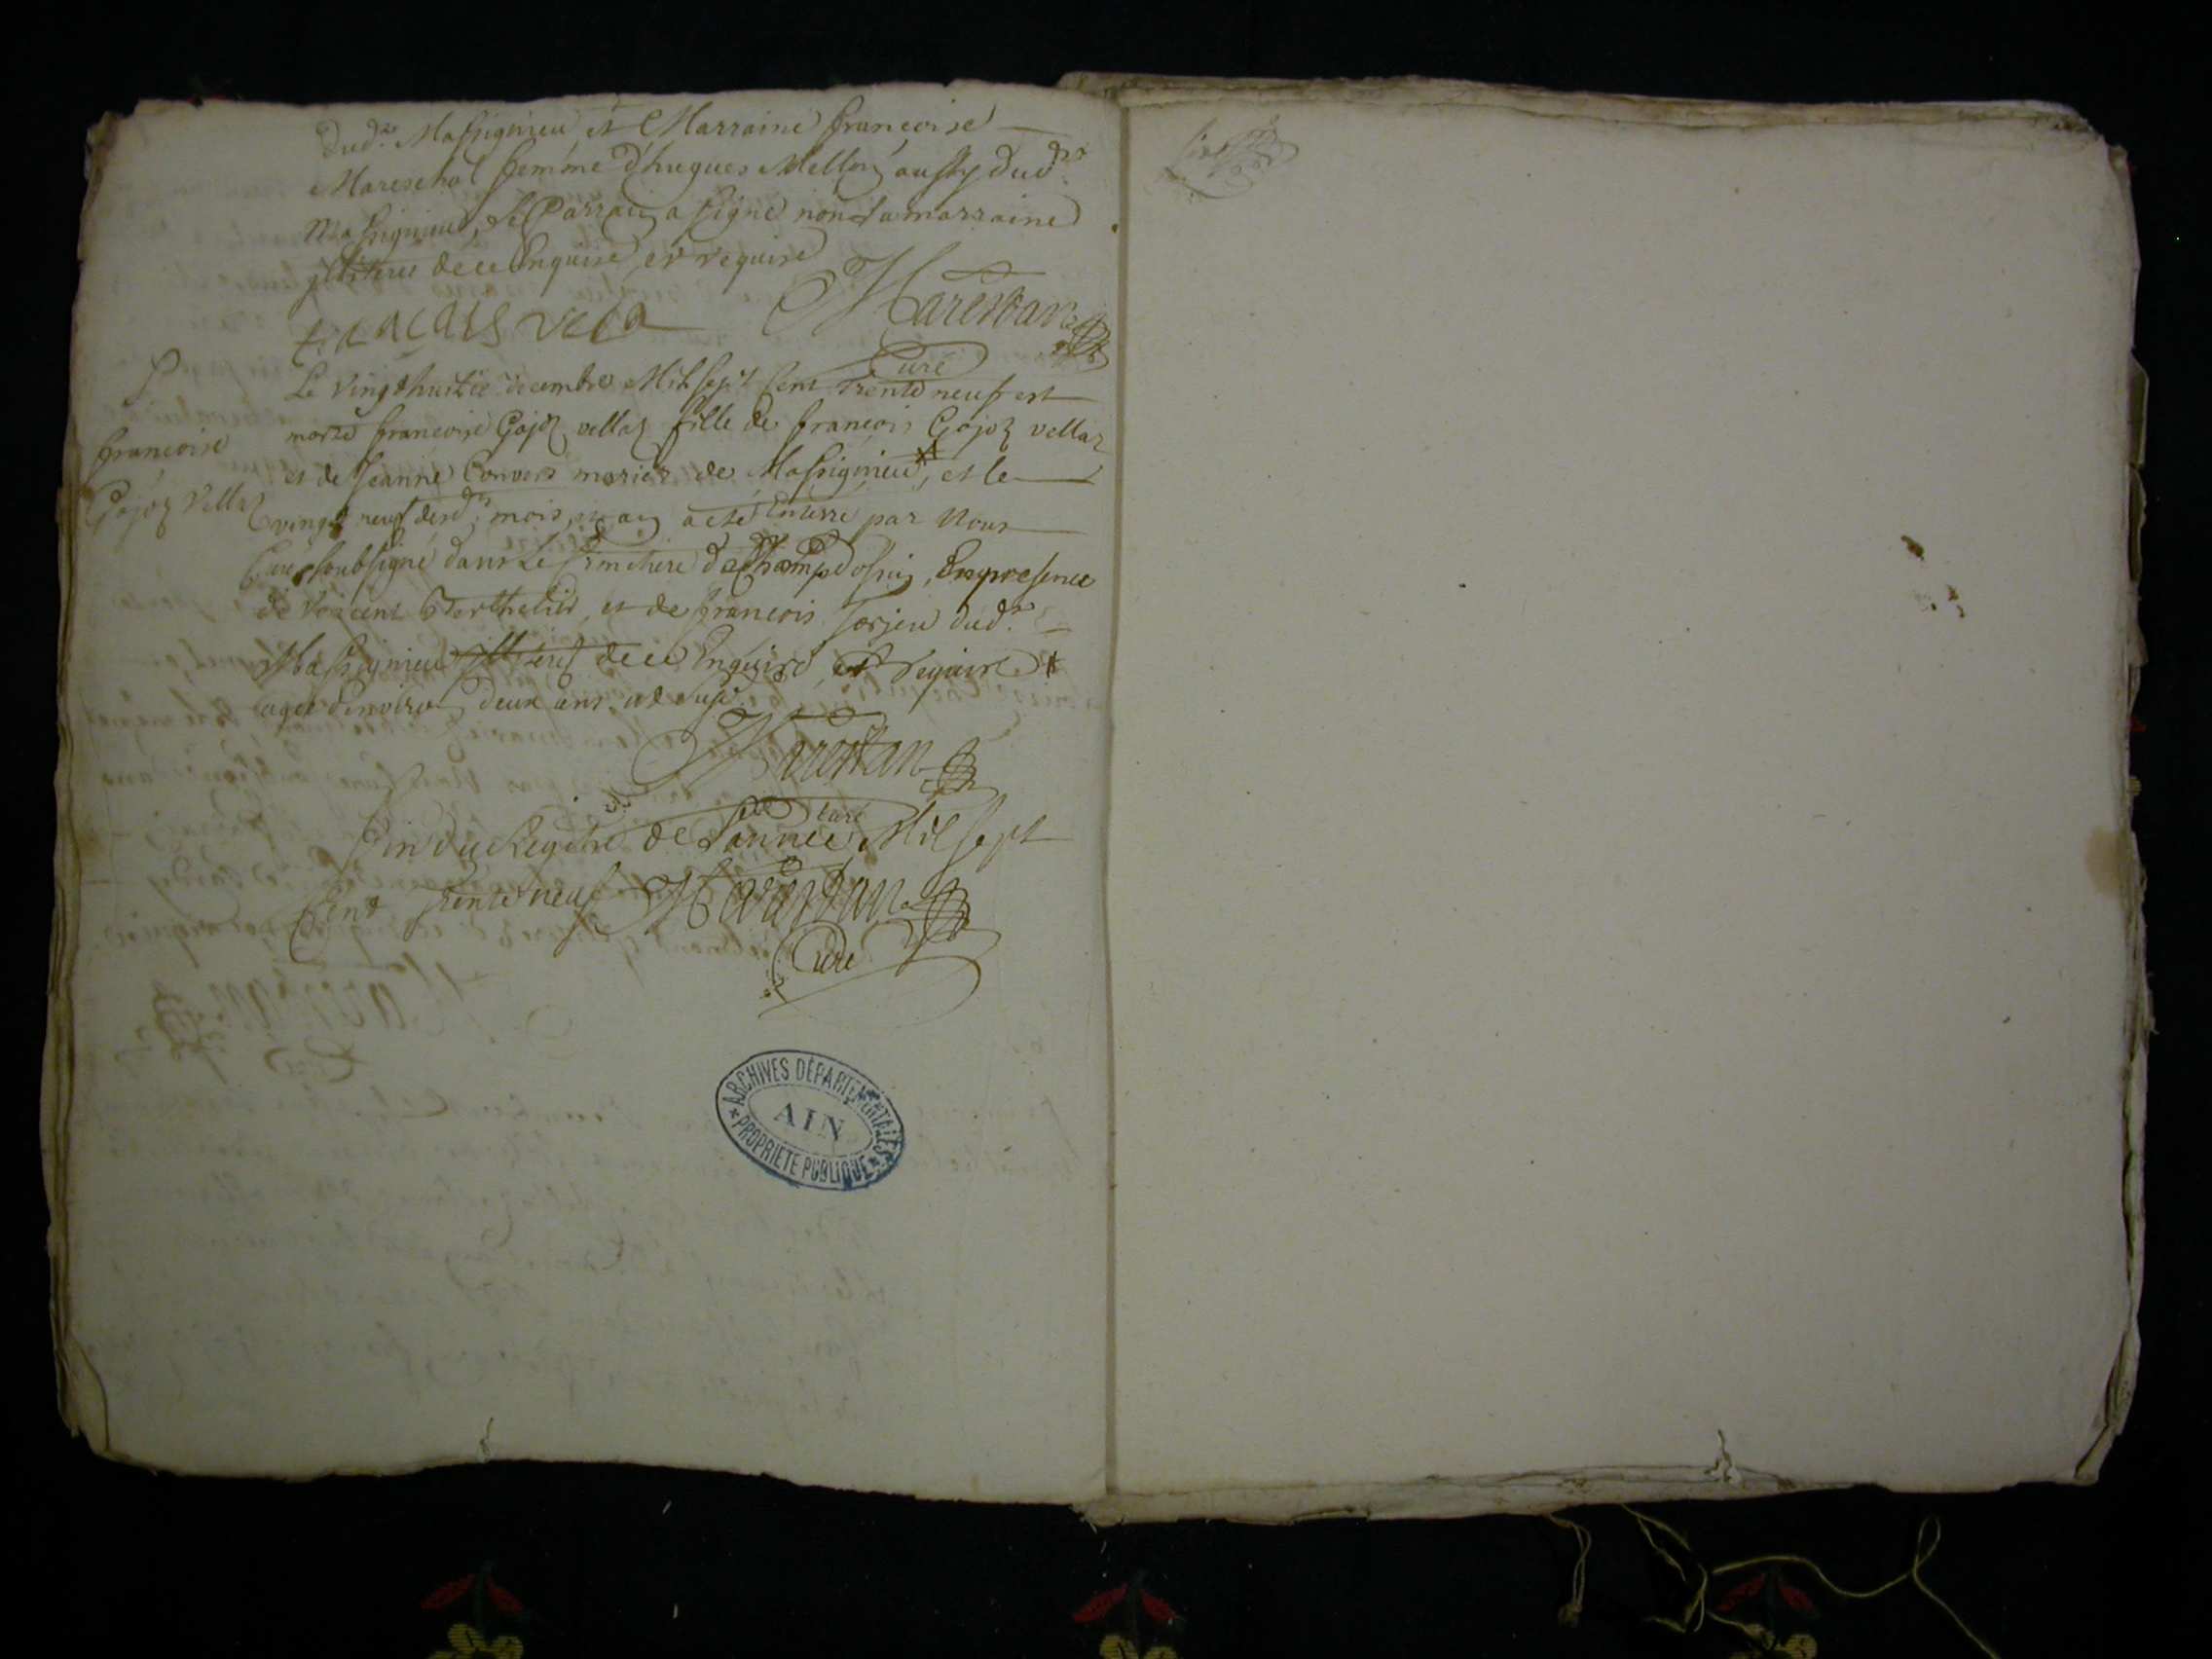 dud.t Massignieu, et Marraine francoise
Mareschal femme d'hugues Mellon aussy dud.t
Massignieu, Le Parrain a signé non la marraine
illiteree de ce Enquise et requise
francois vela Marestan
Curé
Le vingt huit xbre decembre Mil sept Cent Trente neuf est
morte francoise Gojoz vellaz fille de francois Gojoz vellaz
et de Jeanne Convers mariez de Massignieu, et le
vingt neuf desd.ts mois, et an a esté Enterré par Nous
Curé soubsigné dans Le Cimetiere de Champdossin, En presence
de Vincent Berthelier, et de francois Sorjeu dud.t
Massignieu illiterez de ce Enquis, et requis
agée d'environ deux ans
francoise
Gojoz Vellaz
Marestan
Curé
Fin du Registre de L'année Mil sept
Cent Trente neuf Marestan
Curé
ARCHIVES DÉPARTEMENTALES
AIN
PROPRIETE PUBLIQUE